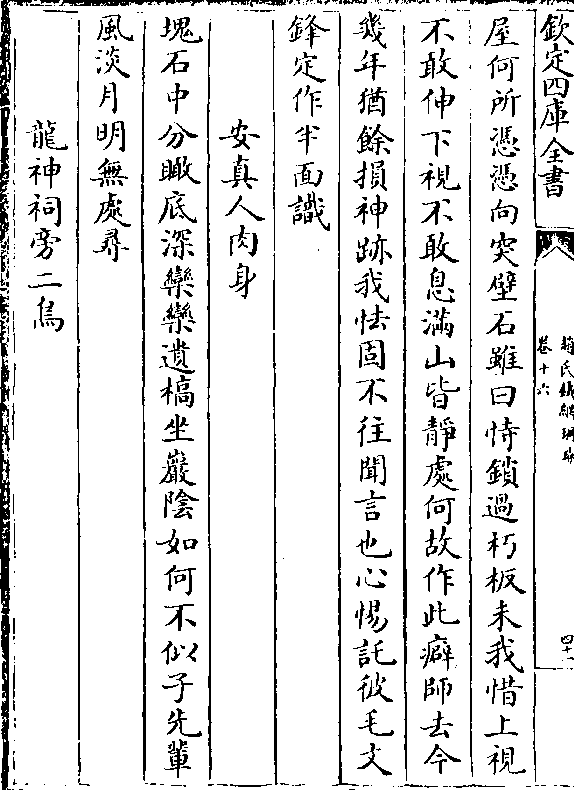 欽定四庫全書
趙氏鐵網珊瑚
卷十六
四十一
屋何所憑憑向突壁石雖曰恃鎖過朽板未我惜上視
不敢伸下視不敢息滿山皆靜處何故作此癖師去今
幾年猶餘損神跡我怯固不往聞言也心惕託彼毛文
鋒定作半面識
安真人肉身
塊石中分瞰底深欒欒遺槁坐巖陰如何不似子先輩
風淡月明無處尋
龍神祠旁二鳥